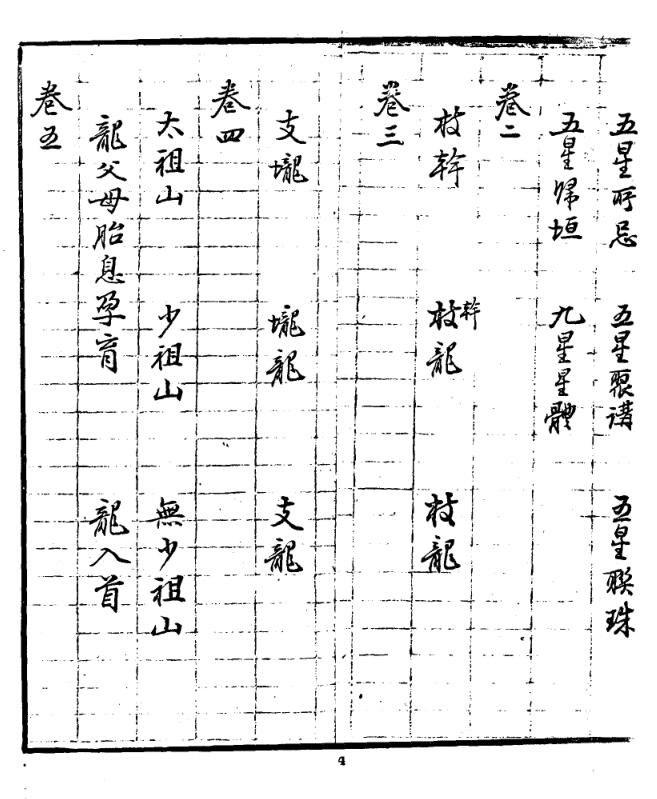 五星所忌 五星聚講 五星聯珠
五星歸垣 九星星體
卷二
枝幹 枝幹龍 枝龍
卷三
支壠 壠龍 支龍
卷四
太祖山 少祖山 無少祖山
龍父母胎息孕育 龍入首
卷五
4